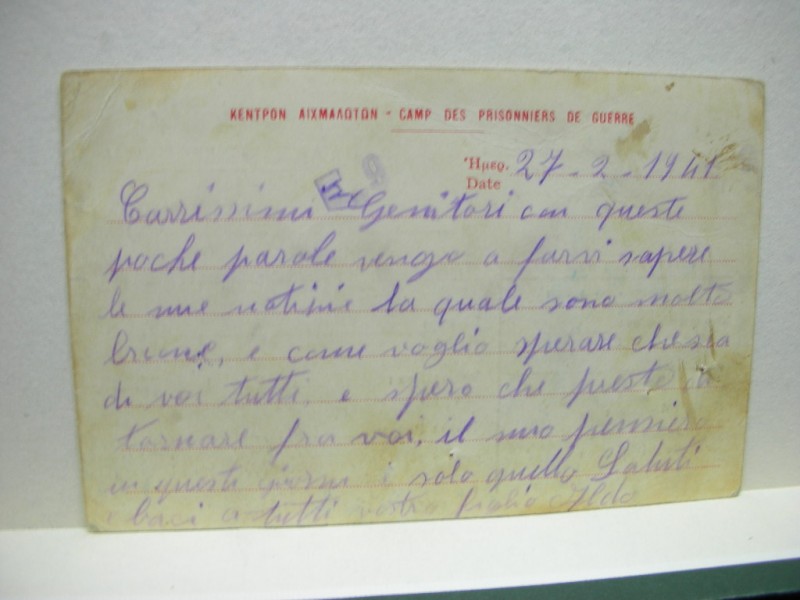 ΚΕΝΤΡΟΝ ΑΙΧΜΑΛΩΤΩΝ - CAMP DES PRISONNIERS DE GUERRE
Ἡμερ. 27-2-1941
Date
Carrissimi Genitori con queste
poche parole vengo a farvi sapere
le mie notizie la quale sono molto
buone, e come voglio sperare che sia
di voi tutti e spero che presto di
tornare fra voi, il mio pensiero
in questi giorni è solo quello Saluti
e baci a tutti vostro figlio Aldo